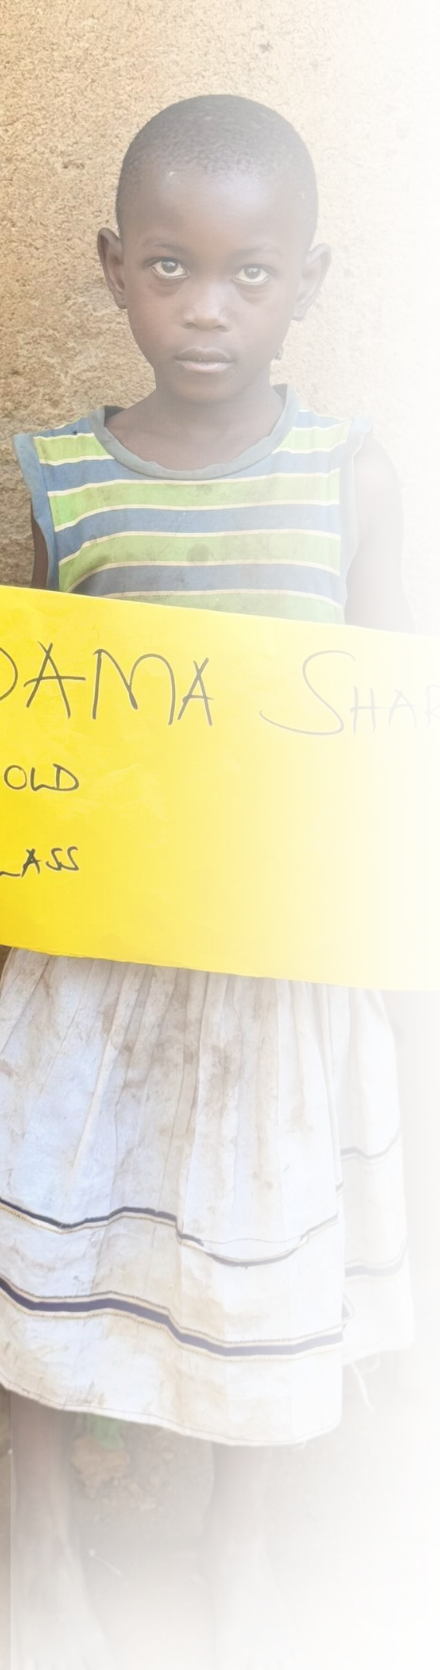 DAMA SHAR
OLD
LASS